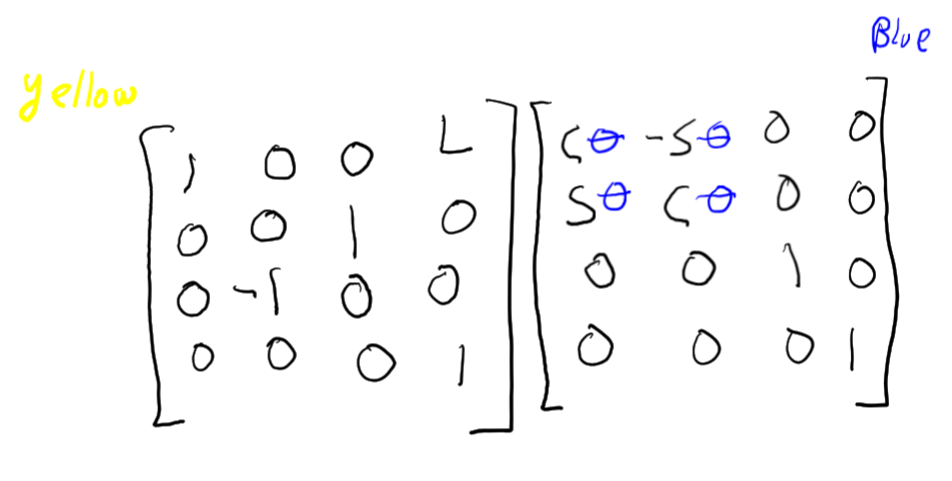 Blue
Yellow
1 0 0 L
0 0 1 0
0 -1 0 0
0 0 0 1
Cθ -Sθ 0 0
Sθ Cθ 0 0
0 0 1 0
0 0 0 1